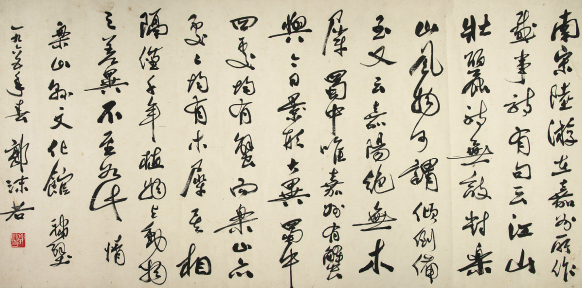 南宋陸游在嘉州所作
感事詩有句云江山
壯麗詩無敵對樂
山風物可謂傾倒備
至又云嘉陽絕無木
犀蜀中唯嘉州有蟹
與今日景大異蜀中
四處均有蟹而樂山亦
處處均有木犀相
隔僅千年植物與動物
之差異不至
樂山縣文化館 補壁
一九六年春 郭沫若